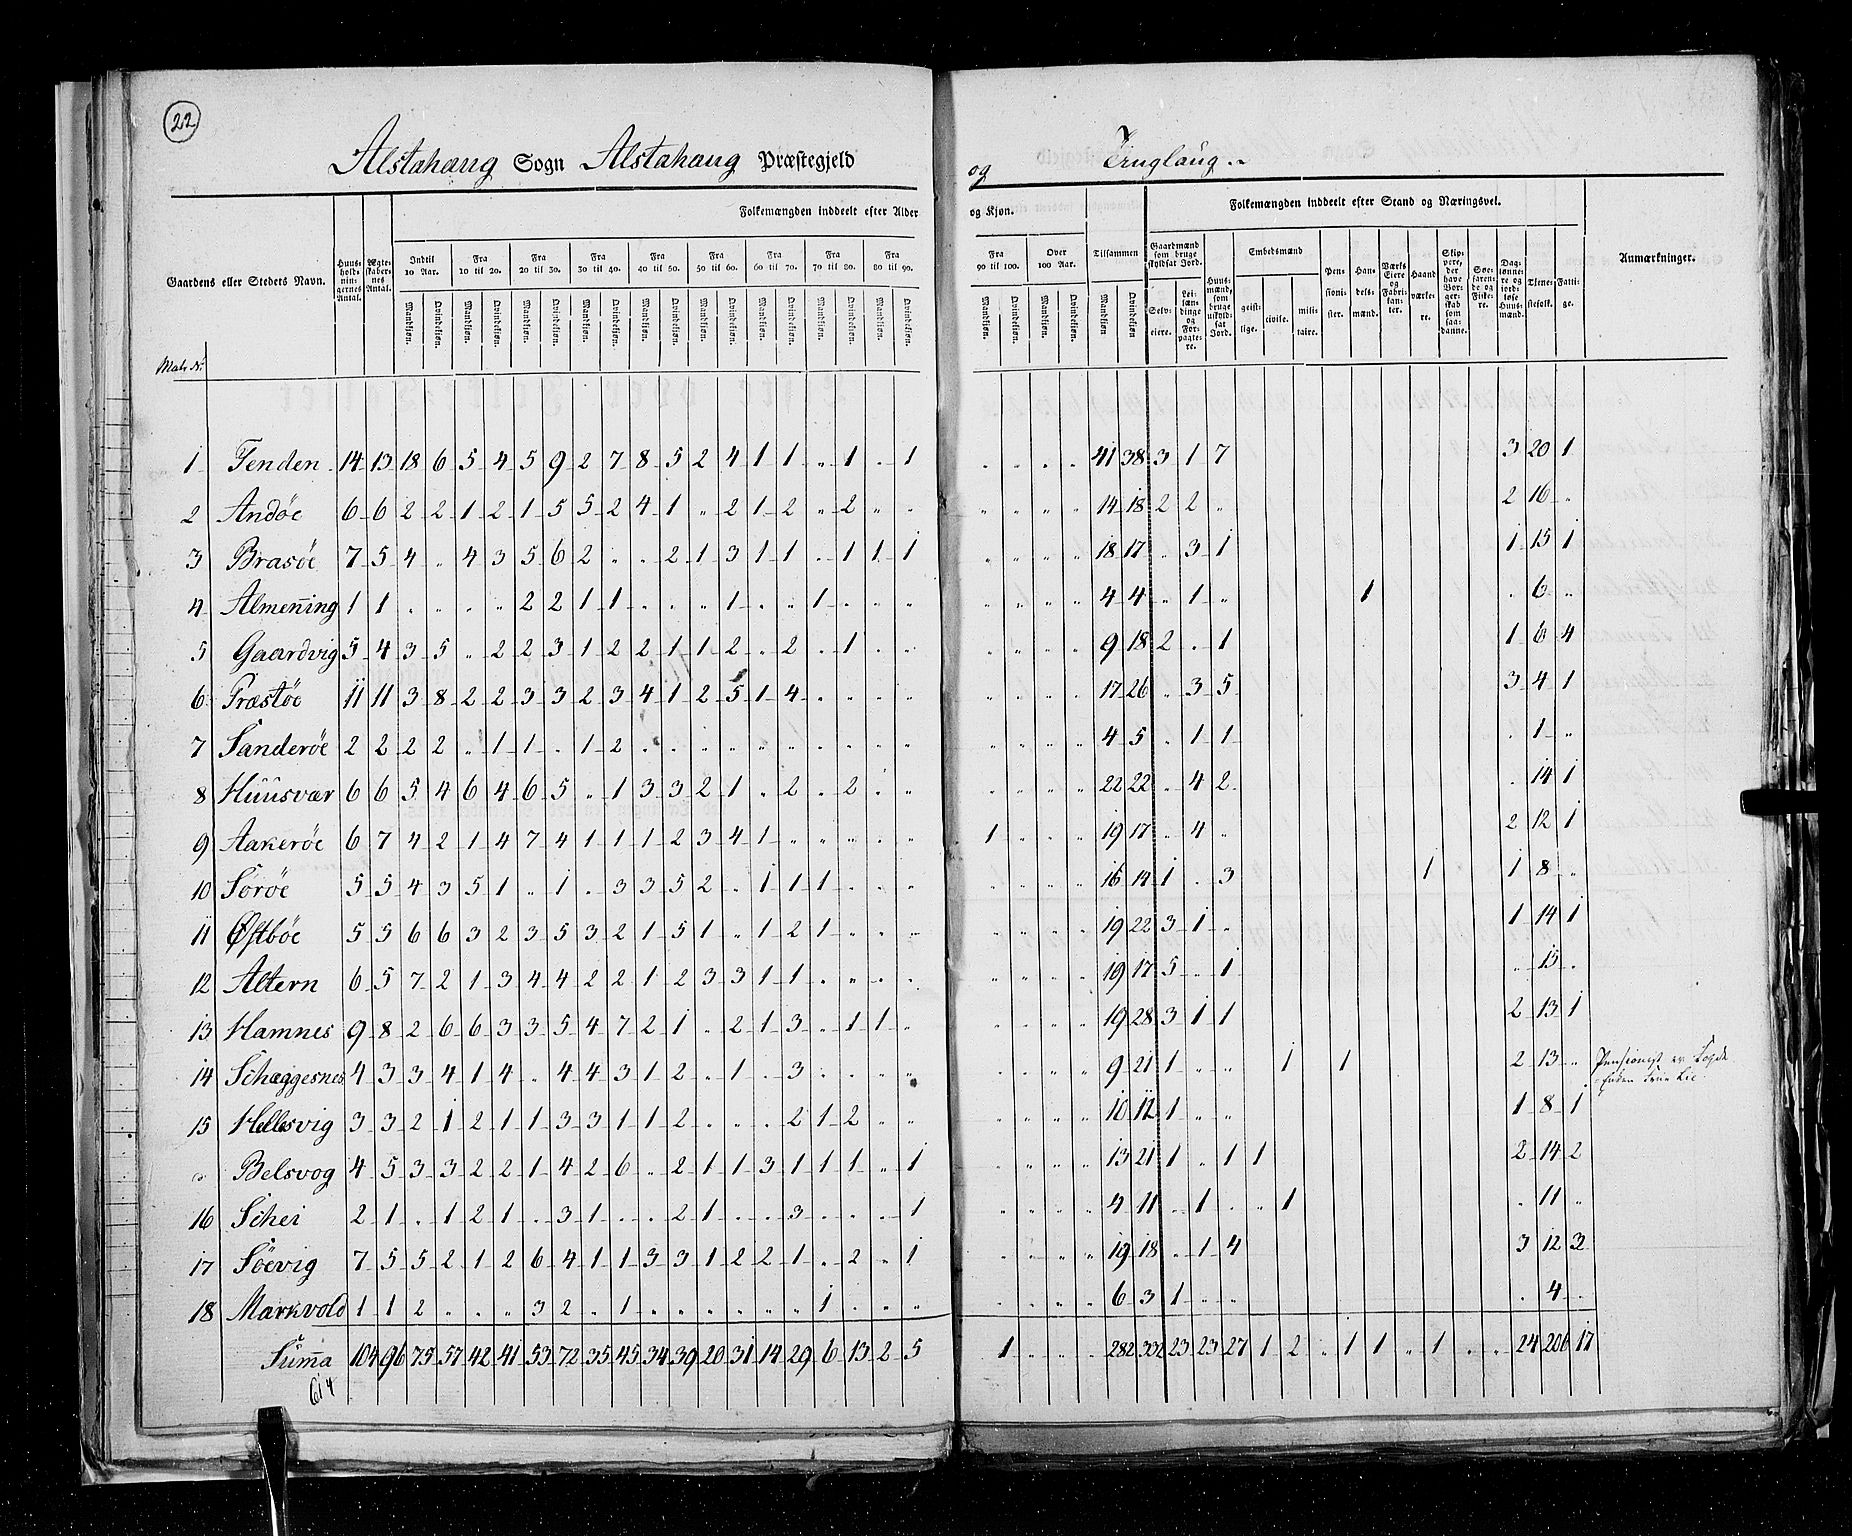 22
Alstahaug Sogn Alstahaug Præstegjeld og Tinglaug
Folkemængden inddeelt efter Alder og Kjøn. Folkemængden inddeelt efter Stand og Næringsvei.
Gaardens eller Stedets Navn. Huusholdningernes Antal. Ægteskabernes Antal. Indtil 10 Aar. Fra 10 til 20. Fra 20 til 30. Fra 30 til 40. Fra 40 til 50. Fra 50 til 60. Fra 60 til 70. Fra 70 til 80. Fra 80 til 90. Fra 90 til 100. Over 100 Aar. Tilsammen Gaardmænd som bruge skyldsat Jord. Huusmænd, som bruge uskyldsat Jord. Embedsmænd Pensionister. Handelsmænd. Værks Eiere og Fabrikanter. Haandværkere. Skippere, der have Borgerskab som saadanne. Søefarende og Fiskere. Daglønnere og jordløse Huusmænd. Tjenestefolk. Fattige. Anmærkninger.
Mandkjøn. Qvindekjøn. Mandkjøn. Qvindekjøn. Mandkjøn. Qvindekjøn. Mandkjøn. Qvindekjøn. Mandkjøn. Qvindekjøn. Mandkjøn. Qvindekjøn. Mandkjøn. Qvindekjøn. Mandkjøn. Qvindekjøn. Mandkjøn. Qvindekjøn. Mandkjøn. Qvindekjøn. Mandkjøn. Qvindekjøn. Mandkjøn Qvindekjøn Selveiere. Leilændinge og Forpagtere. geistlige. civile. militaire.
Matr No
1 Tenden 14 13 18 6 5 4 5 9 2 7 8 5 2 4 1 1 " 1 " 1 " " " " 41 38 3 1 7 3 20 1
2 Andöe 6 6 2 2 1 2 1 5 5 2 4 1 " 2 1 2 " 2 " " " " " " 14 18 2 2 " 2 16 "
3 Brasöe 7 5 4 " 4 3 5 6 2 " " 2 1 3 1 1 " 1 1 1 " " " " 18 17 " 3 1 1 15 1
4 Almenning 1 1 " " " " 2 2 1 1 " " " 1 " " 1 " " " " " " " 4 4 " 1 " 1 " 6 "
5 Gaardvig 5 4 3 5 " 2 2 3 1 2 2 1 1 2 " 2 " 1 " " " " " " 9 18 2 " 1 1 6 4
6 Træstöe 11 11 3 8 2 2 3 3 2 3 4 1 2 5 1 4 " " " " " " " " 17 26 " 3 5 3 4 1
7 Sanderöe 2 2 2 2 " 1 1 " 1 2 " " " " " " " " " " " " " " 4 5 " 1 1 " 1 "
8 Huusvær 6 6 5 4 6 4 6 5 " 1 3 3 2 1 " 2 " 2 " " " " " " 22 22 " 4 2 " 14 1
9 Aakeröe 6 7 4 2 1 4 7 4 1 1 1 2 3 4 1 " " " " " 1 " " " 19 17 " 4 " 2 12 1
10 Söröe 5 5 4 3 5 1 " 1 " 3 3 5 2 " 1 1 1 " " " " " " " 16 14 1 " 3 1 1 8 "
11 Østböe 5 5 6 6 3 2 3 5 3 2 1 5 1 " 1 2 1 " " " " " " " 19 22 3 1 " 1 14 1
12 Altern 6 5 7 2 1 3 4 4 2 2 1 2 3 3 1 1 " " " " " " " " 19 17 5 " 1 " 15 "
13 Hamnes 9 8 2 6 6 3 3 5 4 7 2 1 " 2 1 3 " 1 1 " " " " " 19 28 3 1 1 2 13 1
14 Schæggesnes 4 3 3 4 1 4 " 4 4 3 1 2 " 1 " 3 " " " " " " " " 9 21 1 " " 1 1 2 13 " Pensionist er Fogde
Enken Frue Lie
15 Hellesvig 3 3 2 1 2 1 1 3 3 1 1 2 " " " 2 1 2 " " " " " " 10 12 1 " " 1 8 1
" Belsvog 4 5 3 3 2 2 1 4 2 6 " 2 1 1 3 1 1 1 " 1 " " " " 13 21 1 " 1 1 2 14 2
16 Schei 2 1 " 1 2 1 " 3 1 " " 2 1 " " 3 " " " 1 " " " " 4 11 " 1 " " 1 " 11 "
17 Söevig 7 5 5 2 1 2 6 4 1 1 3 3 1 2 2 1 " 2 " 1 " " " " 19 18 " 1 4 3 12 3
18 Markvold 1 1 2 " " " 3 2 " 1 " " " " " " 1 " " " " " " " 6 3 1 " " " 4 "
Summa 104 96 75 57 42 41 53 72 35 45 34 39 20 31 14 29 6 13 2 5 1 " " " 282 332 23 23 27 1 2 " 1 1 " 1 " " 24 206 17
614